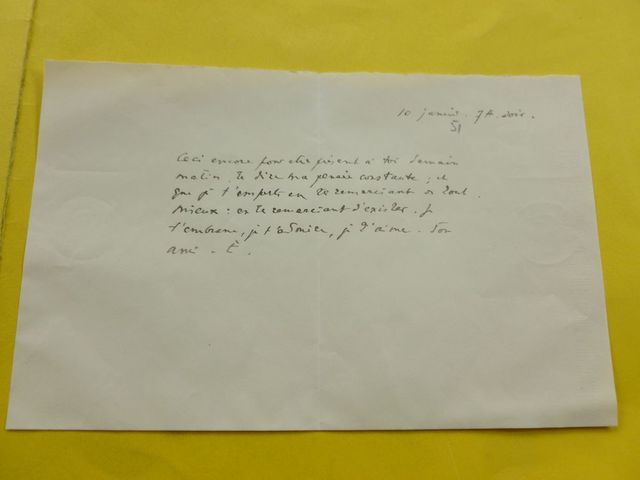 10 janvier. 7h. soir.
51
Ceci encore pour être présent à toi demain
matin, te dire ma pensée constante ; et
que je t'emporte en te remerciant de tout.
Mieux : en te remerciant d'exister. Je
t'embrasse, je t'admire, je t'aime. Ton
ami. É.